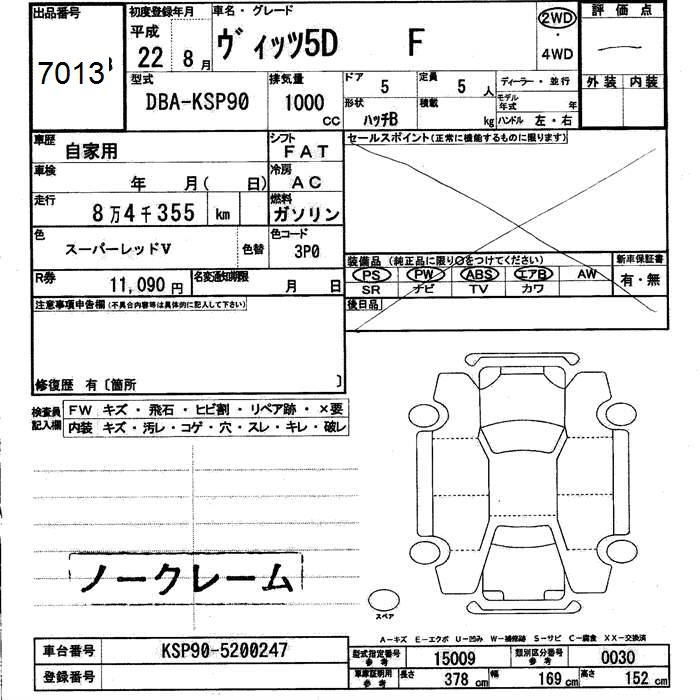 出品番号
7013
初度登録年月
平成
22 8月
車名・グレード
ヴィッツ5D F
2WD
・
4WD
評価点
型式
DBA-KSP90
排気量
1000
CC
ドア
5
定員
5 人
形状
ハッチB
積載
kg
ディーラー・並行
モデル年式 年
ハンドル 左・右
外装 内装
車歴
自家用
シフト
FAT
車検
年 月( 日)
冷房
AC
走行
8万4千355 km
燃料
ガソリン
色
スーパーレッドV
色替
色コード
3P0
R券
11,090円
名変通知期限
月 日
セールスポイント(正常に機能するものに限ります)
装備品 (純正品に限り○をつけてください)
PS PW ABS エアB AW
SR ナビ TV カワ
新車保証書
有・無
後日品
注意事項申告欄(不具合内容等は具体的に記入して下さい)
修復歴 有〔箇所 〕
検査員記入欄
FW キズ・飛石・ヒビ割・リペア跡・×要
内装 キズ・汚レ・コゲ・穴・スレ・キレ・破レ
ノークレーム
スペア
A-キズ E-エクボ U-凹み W-補修跡 S-サビ C-腐食 XX-交換済
車台番号
KSP90-5200247
登録番号
型式指定番号 参考
15009
類別区分番号 参考
0030
車庫証明用 参考
長さ 378 cm
幅 169 cm
高さ 152 cm